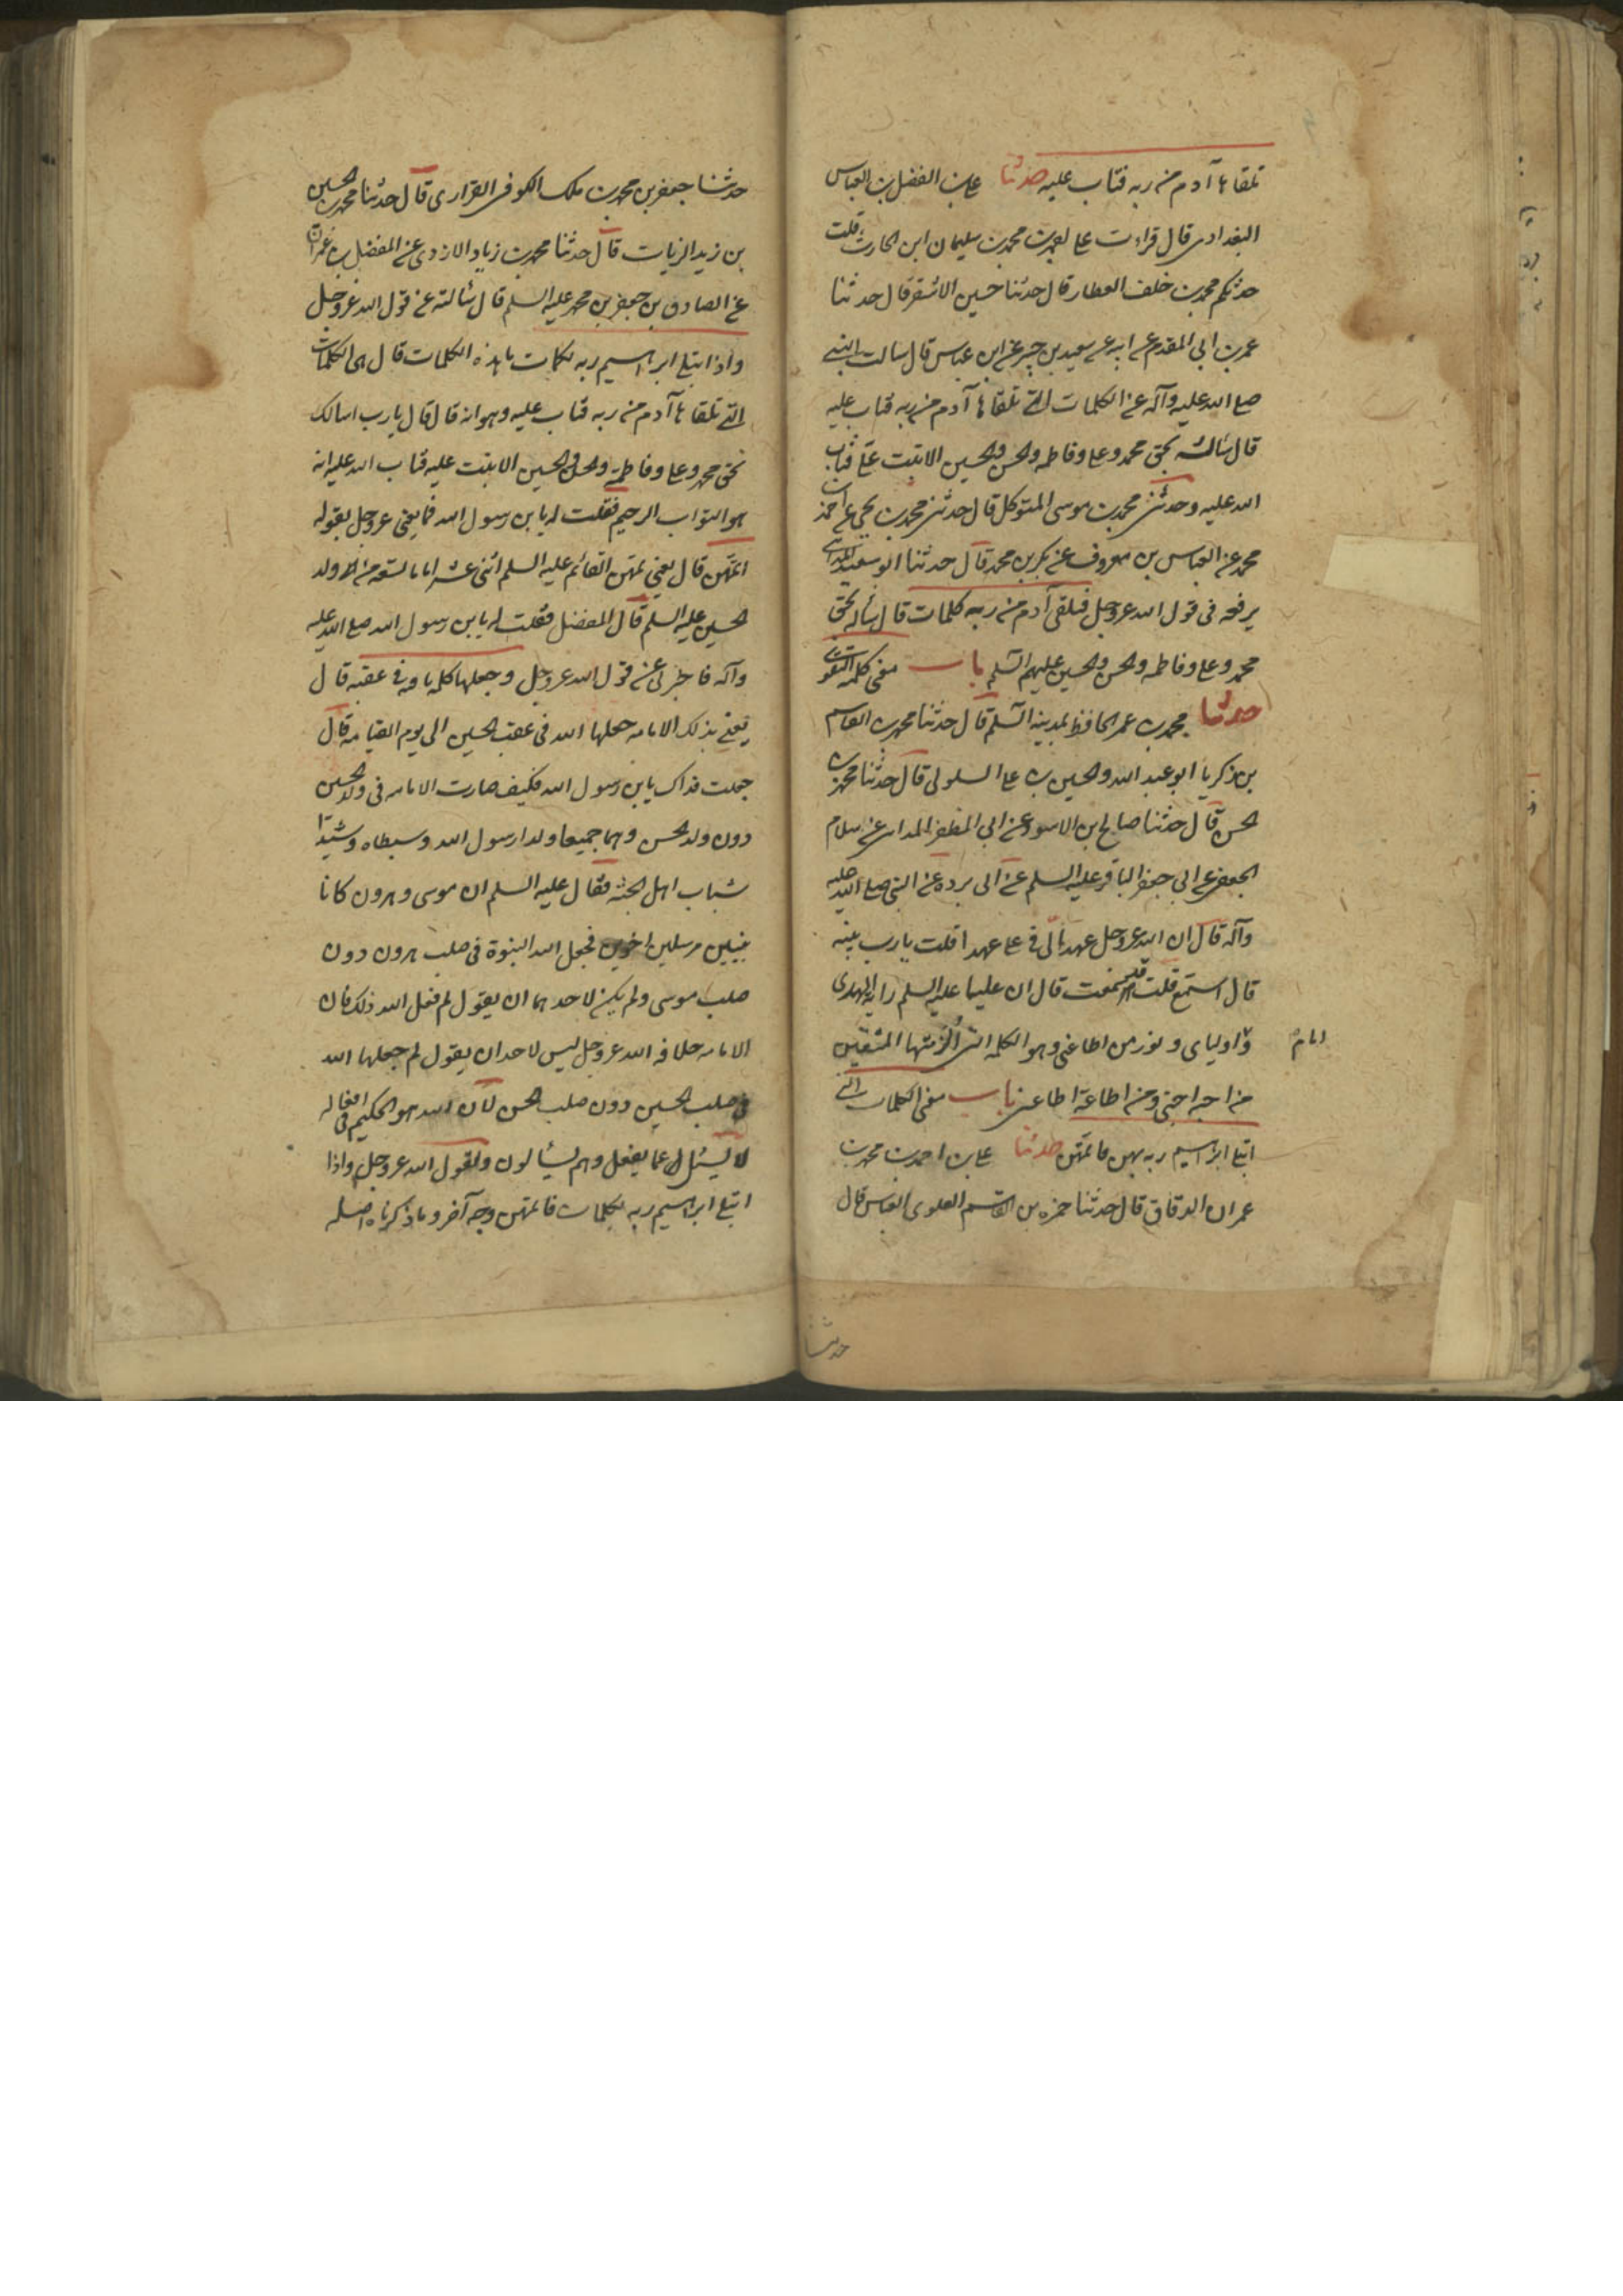 تلقاها آدم من ربه فتاب عليه حدثنا على بن الفضل بن العباس
البغدادى قال قراءت على احمد بن محمد بن سليمان ابن الحارث قلت
حدثكم محمد بن خلف العطار قال حدثنا حسين الاشقر قال حدثنا
عمرو بن ابى المقدم عن ابيه عن سعيد بن جبير عن ابن عباس قال سالت النبى
صلى الله عليه وآله عن الكلمات التى تلقاها آدم من ربه فتاب عليه
قال سأله بحق محمد وعلى وفاطمه والحسن والحسين الا تبت على فتاب
الله عليه وحدثنى محمد بن موسى المتوكل قال حدثنى محمد بن يحيى عن احمد بن
محمد عن العباس بن معروف عن بكر بن محمد قال حدثنا ابو سعيد المداينى
يرفعه فى قول الله عز وجل فتلقى آدم من ربه كلمات قال سأله بحق
محمد وعلى وفاطمه والحسن والحسين عليهم السلم باب معنى كلمه التقوى
حدثنا محمد بن عمر الحافظ بمدينه السلم قال حدثنا محمد بن القاسم
بن زكريا ابو عبد الله والحسين بن على السلولى قال حدثنا محمد بن
الحسن قال حدثنا صالح بن الاسود عن ابى المظفر المداينى عن سلام
الجعفى عن ابى جعفر الباقر عليه السلم عن ابى برده عن النبى صلى الله عليه
وآله قال ان الله عز وجل عهد الى فى على عهدا قلت يا رب بينه
قال استمع قلت قد سمعت قال ان عليا عليه السلم رايه الهدى
و اولياى ونور من اطاعنى وهو الكلمه التى الزمتها المتقين
امام
من احبه احبنى ومن اطاعة اطاعنى باب معنى الكلمات التى
ابتلى ابراهيم ربه بهن فاتمهن حدثنا على بن احمد بن محمد بن
عمران الدقاق قال حدثنا حمزه بن القسم العلوى العباسى قال
حدثنا
حدثنا جعفر بن محمد بن ملك الكوفى الفزارى قال حدثنا محمد بن الحسين
بن زيد الزيات قال حدثنا محمد بن زياد الازدى عن المفضل بن عمر
عن الصادق بن جعفر بن محمد عليه السلم قال سألته عن قول الله عز وجل
واذ ابتلى ابراهيم ربه بكلمات ما هذه الكلمات قال هى الكلمات
التى تلقاها آدم من ربه فتاب عليه وهو انه قال قال يا رب اسالك
بحق محمد وعلى وفاطمه والحسن والحسين الا تبت عليه فتاب الله عليه انه
هو التواب الرحيم فقلت له يا بن رسول الله فما يعنى عز وجل بقوله
اتمهن قال يعنى تمهن القائم عليه السلم اثنى عشر اماما تسعه من ولد
الحسين عليه السلم قال المفضل فقلت له يا بن رسول الله صلى الله عليه
وآله فاخبرنى عن قول الله عز وجل وجعلها كلمه باقيه فى عقبه قال
يعنى بذلك الامامه جعلها الله فى عقب الحسين الى يوم القيامه قال
جعلت فداك يا بن رسول الله فكيف صارت الامامه فى ولد الحسين
دون ولد الحسن وهما جميعا ولدا رسول الله وسبطاه وسيدا
شباب اهل الجنه فقال عليه السلم ان موسى وهرون كانا
نبيين مرسلين اخوين فجعل الله النبوة فى صلب هرون دون
صلب موسى ولم يكن لاحد هما ان يقول لم فعل الله ذلك فان
الامامه خلافه الله عز وجل ليس لاحد ان يقول لم جعلها الله
فى صلب الحسين دون صلب الحسن لان الله هو الحكيم فى افعاله
لا يسئل عما يفعل وهم يسألون ولقول الله عز وجل واذا
ابتلى ابراهيم ربه بكلمات فاتمهن وجه آخر وما ذكرناه اصله